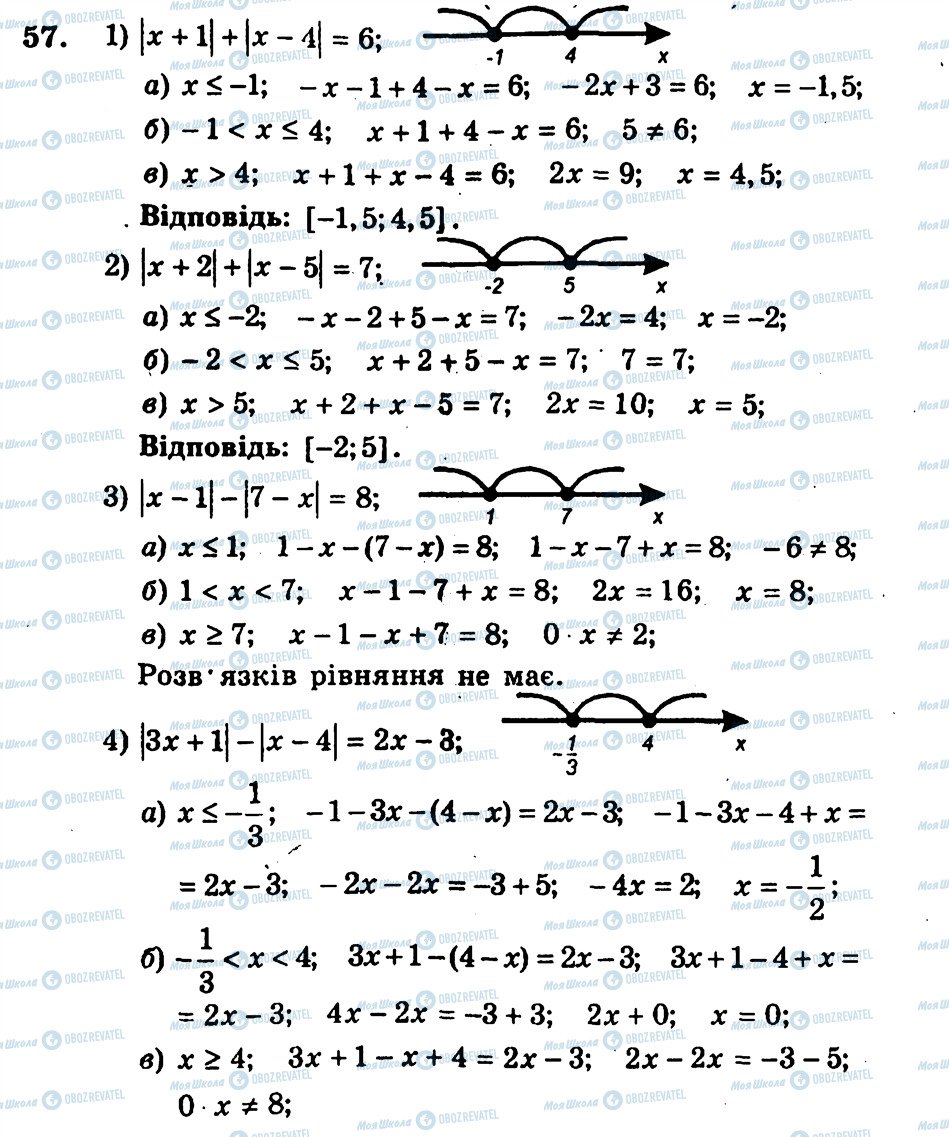 57. 1) |x + 1| + |x − 4| = 6;
-1 4 x
а) x ≤ −1; − x − 1 + 4 − x = 6; − 2x + 3 = 6; x = −1,5;
б) − 1 < x ≤ 4; x + 1 + 4 − x = 6; 5 ≠ 6;
в) x > 4; x + 1 + x − 4 = 6; 2x = 9; x = 4,5;
Відповідь: [−1,5; 4,5].
2) |x + 2| + |x − 5| = 7;
-2 5 x
а) x ≤ −2; − x − 2 + 5 − x = 7; − 2x = 4; x = −2;
б) − 2 < x ≤ 5; x + 2 + 5 − x = 7; 7 = 7;
в) x > 5; x + 2 + x − 5 = 7; 2x = 10; x = 5;
Відповідь: [−2; 5].
3) |x − 1| − |7 − x| = 8;
1 7 x
а) x ≤ 1; 1 − x − (7 − x) = 8; 1 − x − 7 + x = 8; − 6 ≠ 8;
б) 1 < x < 7; x − 1 − 7 + x = 8; 2x = 16; x = 8;
в) x ≥ 7; x − 1 − x + 7 = 8; 0 · x ≠ 2;
Розв'язків рівняння не має.
4) |3x + 1| − |x − 4| = 2x − 3;
-1/3 4 x
а) x ≤ −1/3; − 1 − 3x − (4 − x) = 2x − 3; − 1 − 3x − 4 + x =
= 2x − 3; − 2x − 2x = −3 + 5; − 4x = 2; x = −1/2;
б) −1/3 < x < 4; 3x + 1 − (4 − x) = 2x − 3; 3x + 1 − 4 + x =
= 2x − 3; 4x − 2x = −3 + 3; 2x + 0; x = 0;
в) x ≥ 4; 3x + 1 − x + 4 = 2x − 3; 2x − 2x = −3 − 5;
0 · x ≠ 8;
Моя Школа OBOZREVATEL